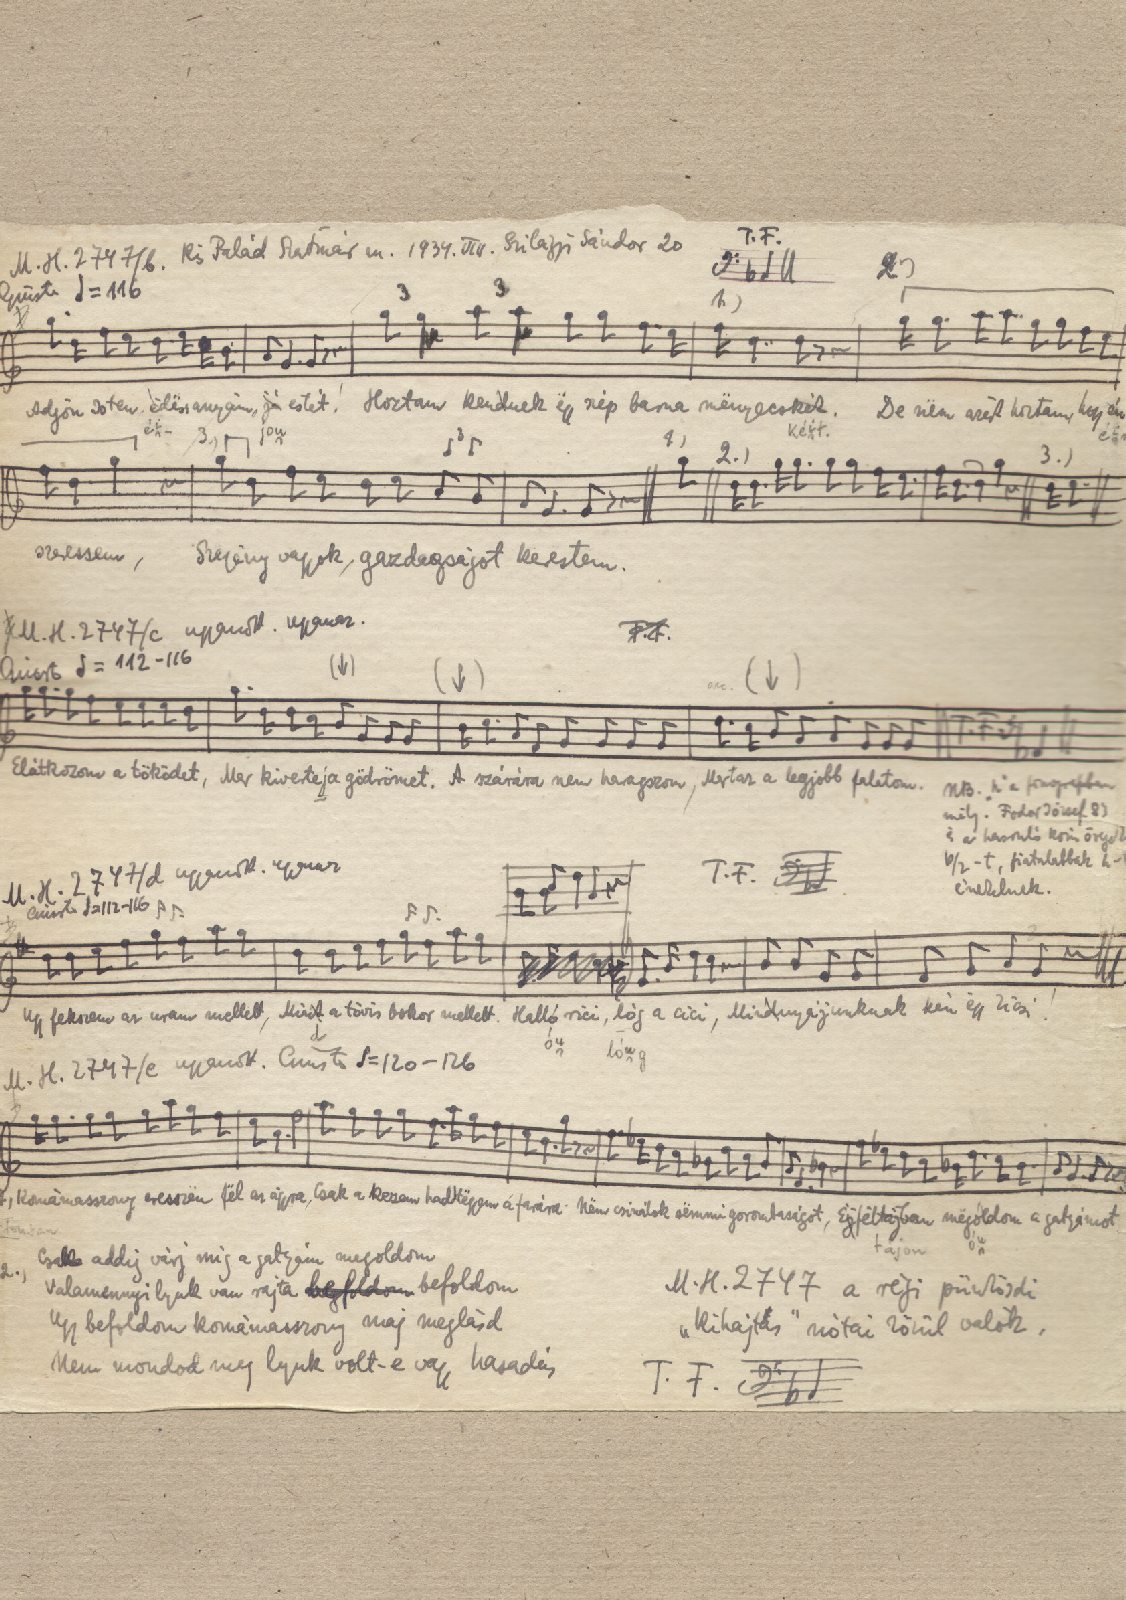 M.H. 2747/b. Kis Palád Szatmár m. 1934. III. Szilágyi Sándor 20
T.F.
Giusto ♩=116
3 3 1.) 2.)
Adjon Isten édësanyám, jó estét! Hoztam kendnek ëgy szép barna mënyecskét. De nëm azért hoztam, hogy én
3.) 3 1.) 2.) 3.)
szeressem, Szegény vagyok, gazdagságot kerestem.
M.H. 2747/c ugyanott. ugyanaz. T.F.
Giusto ♩= 112-116
(↓) (↓) (↓)
T.F.
Elátkozom a töködet, Mer kiverte ja gödrömet. A szárára nem haragszom, Mer az a legjobb falatom.
NB. "h" a fonográfban
mély. Fodor József 83
és a hasonló korú
b/2-t, fiatalabbak h-t
énekelnek.
M.H. 2747/d ugyanott. ugyanaz
T.F.
Giusto ♩=112-116
Ugy fekszem az uram mellett, Mint a tövis bokor mellett. Halló rici, lóg a cici, Mindnyájunknak kén ëgy kicsi!
d
M.H. 2747/e ugyanott. Giusto ♩=120-126
1, Komámasszony eresszën fël az ágyra, Csak a kezem hadd tëgyem a farára. Nëm csinálok sëmmi gorombaságot, Éjféltájban mëgoldom a gatyámot
tájon
2., Csak addig várj míg a gatyám megoldom
Valamennyi lyuk van rajta befoldom
Ugy befoldom komámasszony maj meglásd
Nem mondod meg lyuk volt-e vagy hasadás
M.H. 2747 a régi pünkösdi
„Kihajtás" nótái közül valók.
T. F.